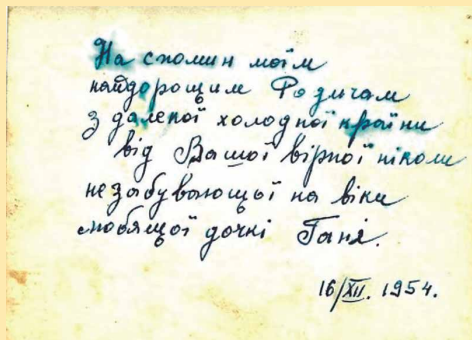 На спомин моїм
найдорощим Родичам
з далекої холодної країни
від Вашої вірної ніколи
незабувающої на віки
люблящої дочкі Ганя.
16/XII. 1954.